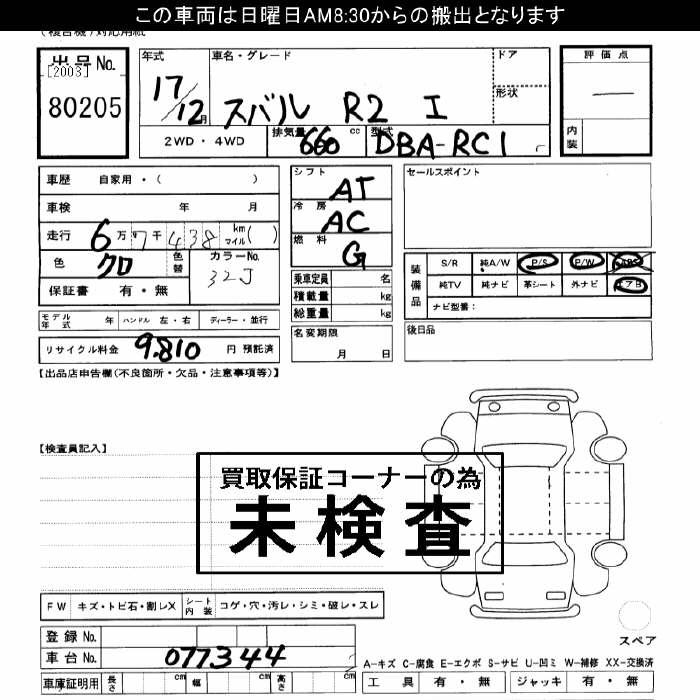 この車両は日曜日AM8:30からの搬出となります
出品No.
[2003]
80205
年式
17/12月
車名・グレード
スバル R2 I
ドア
形状
2WD・4WD
排気量 660 cc
型式 DBA-RC1
評価点
―
内装
車歴 自家用・( )
車検 年 月
走行 6万7千438 km マイル( )
色 クロ
色替
カラーNo. 32J
保証書 有・無
シフト AT
冷房 AC
燃料 G
乗車定員 名
積載量 kg
総重量 kg
名変期限
月 日
セールスポイント
装備品
S/R 純A/W P/S P/W ABS
純TV 純ナビ 革シート 外ナビ エアB
ナビ型番:
後日品
モデル年式 年 ハンドル 左・右 ディーラー・並行
リサイクル料金 9.810 円 預託済
【出品店申告欄(不良箇所・欠品・注意事項等)】
【検査員記入】
買取保証コーナーの為
未検査
FW キズ・トビ石・割レX シート内装 コゲ・穴・汚レ・シミ・破レ・スレ
登録No.
車台No. 077344
車庫証明用 長さ cm 幅 cm 高さ cm
スペア
A-キズ C-腐食 E-エクボ S-サビ U-凹ミ W-補修 XX-交換済
工具 有・無 ジャッキ 有・無